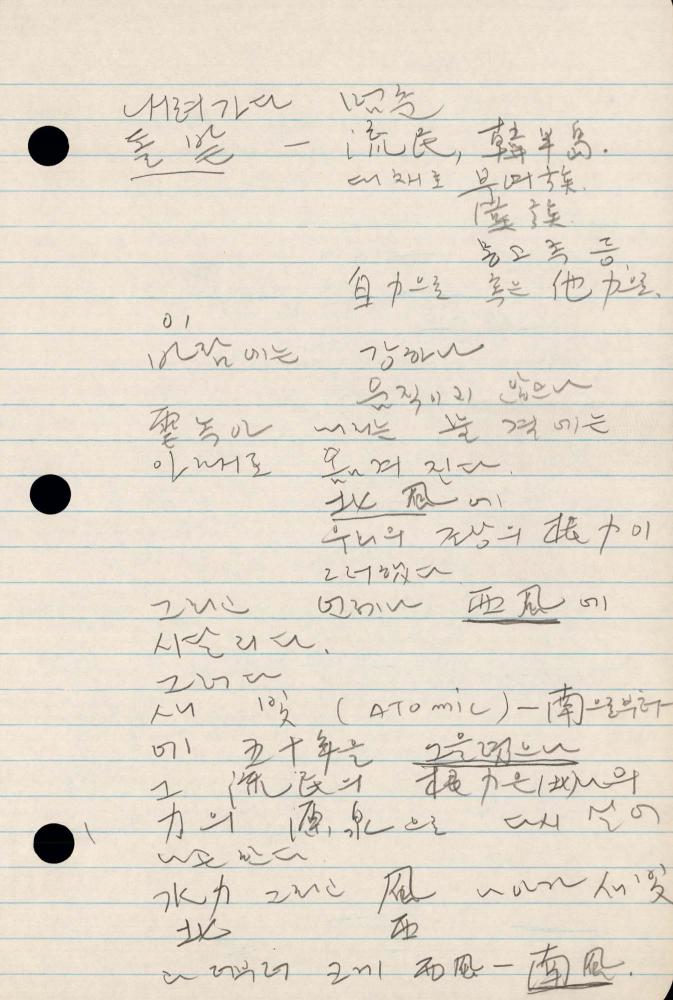 내려가다 멈춘
돌 밭 — 流民, 韓半島.
대채로 부여族.
漢族.
등
自力으로 혹은 他力으로.
이
바람에는 강하나
움직이지 않으나
雪 녹아 내리는 물결에는
아래로 옮겨 진다.
北風에
우리의 조상의 根力이
그러했다
그리고 언제나 西風에
시달리다.
그러다
새 빛 (ATOMIC) — 南으로부터
에 五十年을 그을렸으나
그 流民의 根力은 (北)의
力의 源泉으로 다시
한다
水力 그리고 風 나아가 새빛
北 西
더부러 그게 西風 — 南風.